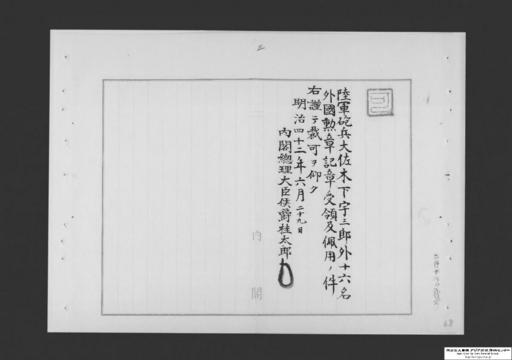 陸軍砲兵大佐木下宇三郎外十六名
外國勲章記章受領及佩用ノ件
右謹テ裁可ヲ仰ク
明治四十二年六月二十九日
內閣總理大臣侯爵桂太郎
內閣